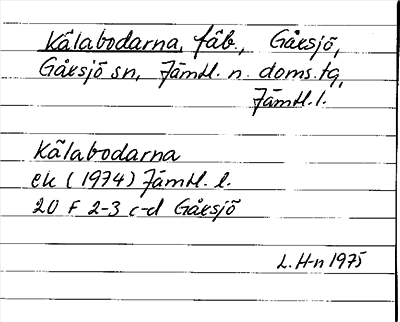 Kålabodarna, fäb., Gåxsjö,
Gåxsjö sn, Jämtl. n. doms.tg,
Jämtl. l.
Kålabodarna
ek (1974) Jämtl. l.
20 F 2-3 c-d Gåxsjö
L. H-n 1975